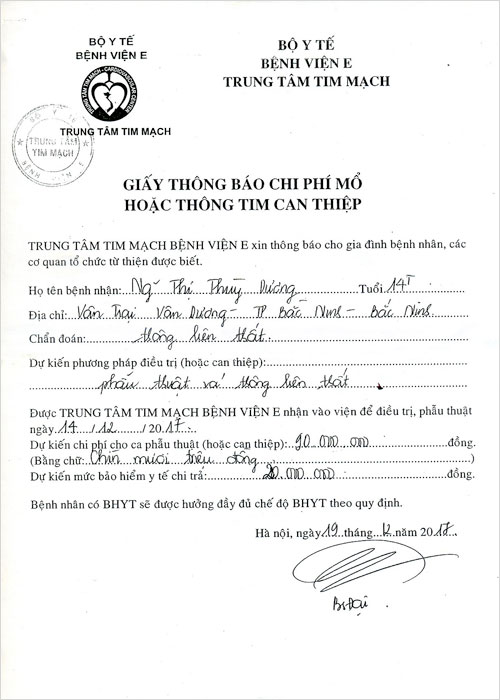 BỘ Y TẾ
BỆNH VIỆN E
TRUNG TÂM TIM MẠCH - CARDIOVASCULAR CENTER
TRUNG TÂM TIM MẠCH
BỘ Y TẾ
BỆNH VIỆN E
TRUNG TÂM TIM MẠCH
BỘ Y TẾ
TRUNG TÂM
TIM MẠCH
BỆNH VIỆN E
GIẤY THÔNG BÁO CHI PHÍ MỔ
HOẶC THÔNG TIM CAN THIỆP
TRUNG TÂM TIM MẠCH BỆNH VIỆN E xin thông báo cho gia đình bệnh nhân, các
cơ quan tổ chức từ thiện được biết.
Họ tên bệnh nhân: Ng~ Thị Thùy Dương Tuổi 14T
Địa chỉ: Vân Trại Vân Dương - TP Bắc Ninh - Bắc Ninh
Chẩn đoán: thông liên thất
Dự kiến phương pháp điều trị (hoặc can thiệp):
phẫu thuật vá thông liên thất
Được TRUNG TÂM TIM MẠCH BỆNH VIỆN E nhận vào viện để điều trị, phẫu thuật
ngày 14 / 12 / 2017.
Dự kiến chi phí cho ca phẫu thuật (hoặc can thiệp): 90.000.000 đồng.
(Bằng chữ: Chín mươi triệu đồng)
Dự kiến mức bảo hiểm y tế chi trả: 20.000.000 đồng.
Bệnh nhân có BHYT sẽ được hưởng đầy đủ chế độ BHYT theo quy định.
Hà nội, ngày 19 tháng 12 năm 2017.
Bs Đại